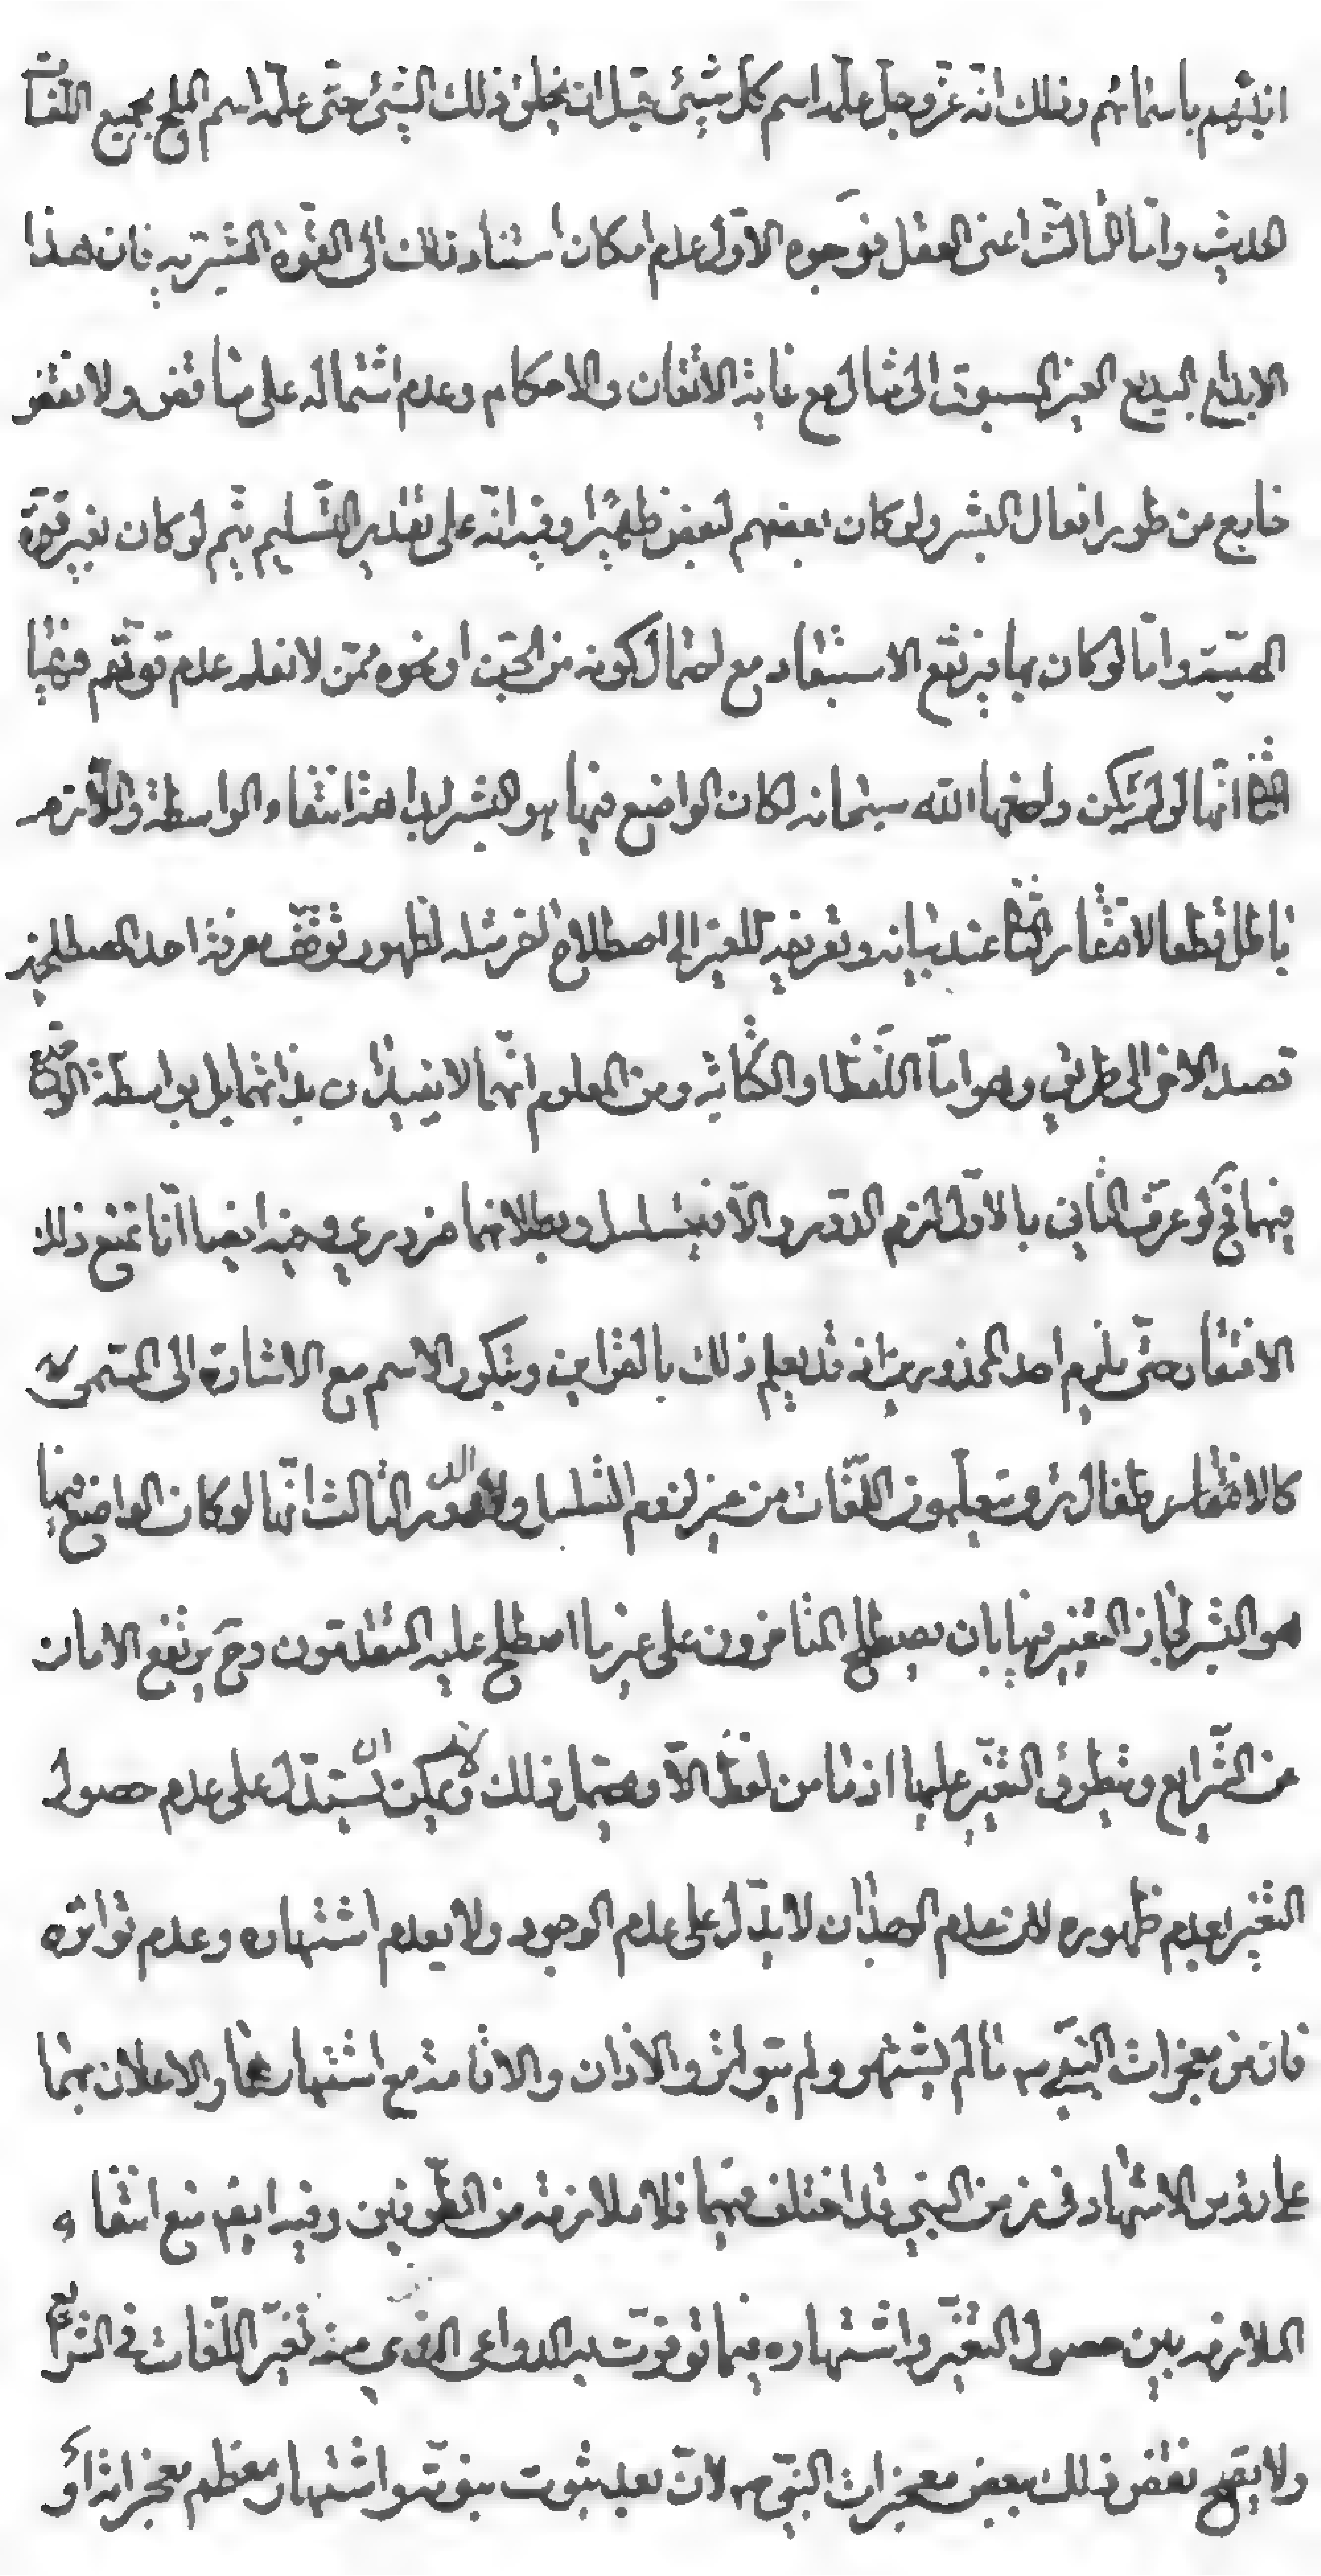 انبئهم باسمائهم وذلك انه عزّ وجلّ علّمه اسم كلّ شيئ قبل ان يخلق ذلك الشيئ حتّى علّمه اسم الملح بجميع اللّغات
الحديث وامّا الثّالث اعنى العقل فوجوه الاوّل عدم امكان استناد ذلك الى القوّة البشريه فان هذا
الابداع البديع الغير المسبوق الى مثال مع غاية الاتقان والاحكام وعدم اشتماله على تناقض ولا نقض
خارج من طور افعال البشر ولو كان بعضهم لبعض ظهيرا وفيه انّه على تقدير التّسليم يتم لو كان بغير قوّة
الهيّة وامّا لو كان بها فيرتفع الاستبعاد مع احتمال كونه من الجنّ او نحوه ممّن لا نعلم عدم قوتهم فيها
الثانى انّها لو لم يكن واضعها الله سبحانه لكان الواضع فيها هو البشر لبداهة انتفاء الواسطة واللّازم
باطل قطعا لافتقار عند بيانه وتعريفه للغير الى اصطلاح اخر مثله لظهور توقّف معرفة احد المصطلحين
قصد الاخر الى طريق وهو امّا اللّفظ او الكتابة ومن المعلوم انّهما لا يفيدان بذاتهما بل بواسطة الوضع
فيهما فح لو عرّف الثّانى بالاوّل لزم الدّور والّا فيتسلسل وبطلانهما ضرورى وفيه ايضا انّا نمنع ذلك
الافتقار حتّى يلزم احد المحذورين انه قد يعلم ذلك بالقراين وبتكرر الاسم مع الاشارة الى المسمّى
كالاطفال يتعلّمون اللّغات من غير لزوم التسلسل والدور الثالث انّها لو كان الواضع فيها
هو البشر لجاز التغيير فيها بان يصطلح المتاخرون على غير ما اصطلح عليه المتقدّمون وح يرتفع الامان
عن الشّرايع ويتطرّق التّغيّر عليها اذ ما من لفظ الّا ويحتمل ذلك لا يمكن ان يستدّل على عدم حصول
التغير بعدم ظهوره لان عدم الوجدان لا يدّل على عدم الوجود ولا بعدم اشتهاره وعدم تواتره
فان من معجزات النبىّ ص ما لم يشتهر ولم يتواتر والاذان والاقامة مع اشتهارهما والاعلان بهما
على رؤس الاشهاد فى زمن النبى قد اختلف فيهما فلا ملازمة من الطّرفين وفيه ايض منع انتفاء
الملازمة بين حصول التغيّر واشتهاره فيما توفرت به الدواعى الذى منه تغيّر اللّغات فى الشرائع
ولا يقدح نقض ذلك ببعض معجزات النبىّ ص لانّ بعد ثبوت نبوته واشتهار معظم معجزاته او